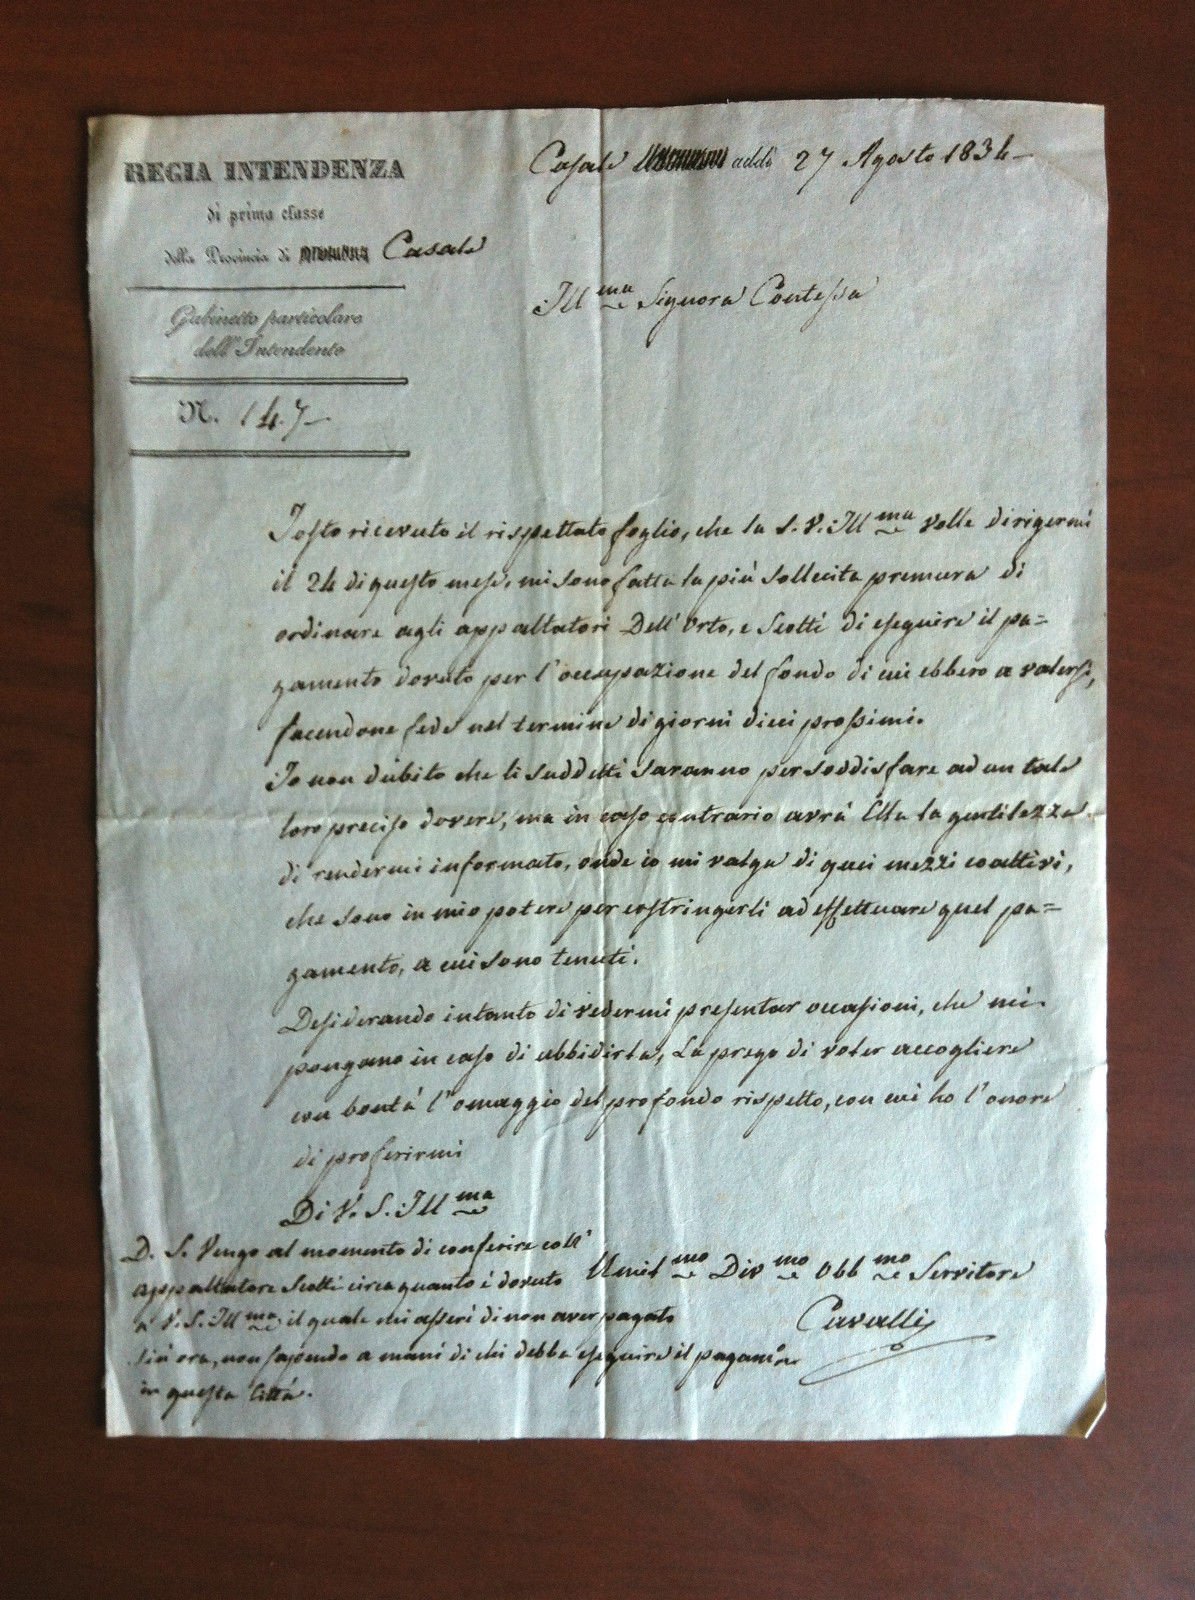 REGIA INTENDENZA
di prima classe
della Provincia di Casale
Gabinetto particolare
dell'Intendente
N. 147
Casale addì 27 Agosto 1834
Ill.ma Signora Contessa
Tosto ricevuto il rispettato foglio, che la S. V. Ill.ma volle dirigermi
il 24 di questo mese, mi sono fatta la più sollecita premura di
ordinare agli appaltatori Dell'Orto, e Scotti di eseguire il pa=
gamento dovuto per l'occupazione del fondo di cui ebbero a valersi,
facendone fede nel termine di giorni dieci prossimi.
Io non dubito che li suddetti saranno per soddisfare ad un tale
loro preciso dovere, ma in caso contrario avrà Ella la gentilezza
di rendermi informato, onde io mi valga di quei mezzi coattivi,
che sono in mio potere per costringerli ad effettuare quel pa=
gamento, a cui sono tenuti.
Desiderando intanto di vedermi presentar occasioni, che mi
pongano in caso di ubbidirla, La prego di voler accogliere
con bontà l'omaggio del profondo rispetto, con cui ho l'onore
di proferirmi
Di V. S. Ill.ma
Umil.mo Div.mo Obb.mo Servitore
Cavalli
P. S. Vengo al momento di conferire coll'
appaltatore Scotti circa quanto è dovuto
a V. S. Ill.ma il quale mi asserì di non aver pagato
sin ora, non sapendo a mani di chi debba eseguire il pagam.to
in questa Città.